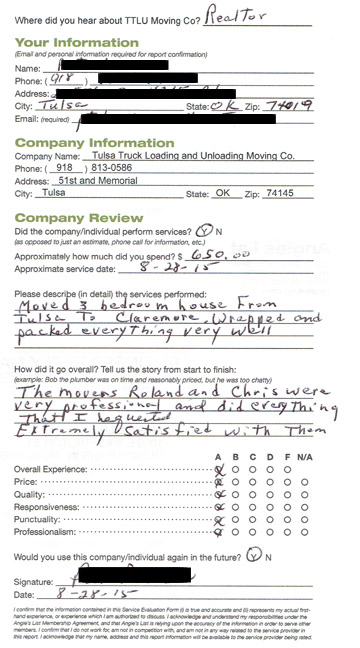 Where did you hear about TTLU Moving Co? Realtor
Your Information
(Email and personal information required for report confirmation)
Name:
Phone: (918 )
Address:
City: Tulsa State: OK Zip: 74019
Email: (required)
Company Information
Company Name: Tulsa Truck Loading and Unloading Moving Co.
Phone: ( 918 ) 813-0586
Address: 51st and Memorial
City: Tulsa State: OK Zip: 74145
Company Review
Did the company/individual perform services? Y N
(as opposed to just an estimate, phone call for information, etc.)
Approximately how much did you spend? $ 650.00
Approximate service date: 8-28-15
Please describe (in detail) the services performed:
Moved 3 bedroom house From
Tulsa To Claremore. Wrapped and
packed everything very well
How did it go overall? Tell us the story from start to finish:
(example: Bob the plumber was on time and reasonably priced, but he was too chatty)
The movers Roland and Chris were
very professional and did everything
That I requested
Extremely Satisfied with Them
A B C D F N/A
Overall Experience:
Price:
Quality:
Responsiveness:
Punctuality:
Professionalism:
Would you use this company/individual again in the future? Y N
Signature:
Date: 8-28-15
I confirm that the information contained in this Service Evaluation Form (i) is true and accurate and (ii) represents my actual first-
hand experience, or experience which I am authorized to discuss. I acknowledge and understand my responsibilities under the
Angie's List Membership Agreement, and that Angie's List is relying upon the accuracy of my information in order to serve other
members. I confirm that I do not work for, am not in competition with, and am not in any way related to the service provider in
this report. I acknowledge that my name, address and this report information will be available to the service provider being rated.